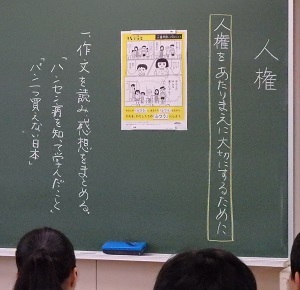 人権
人権をあたりまえに大切にするために
一、作文を読み感想をまとめる。
「ハンセン病を知って学んだこと」
「パン一つ買えない日本」